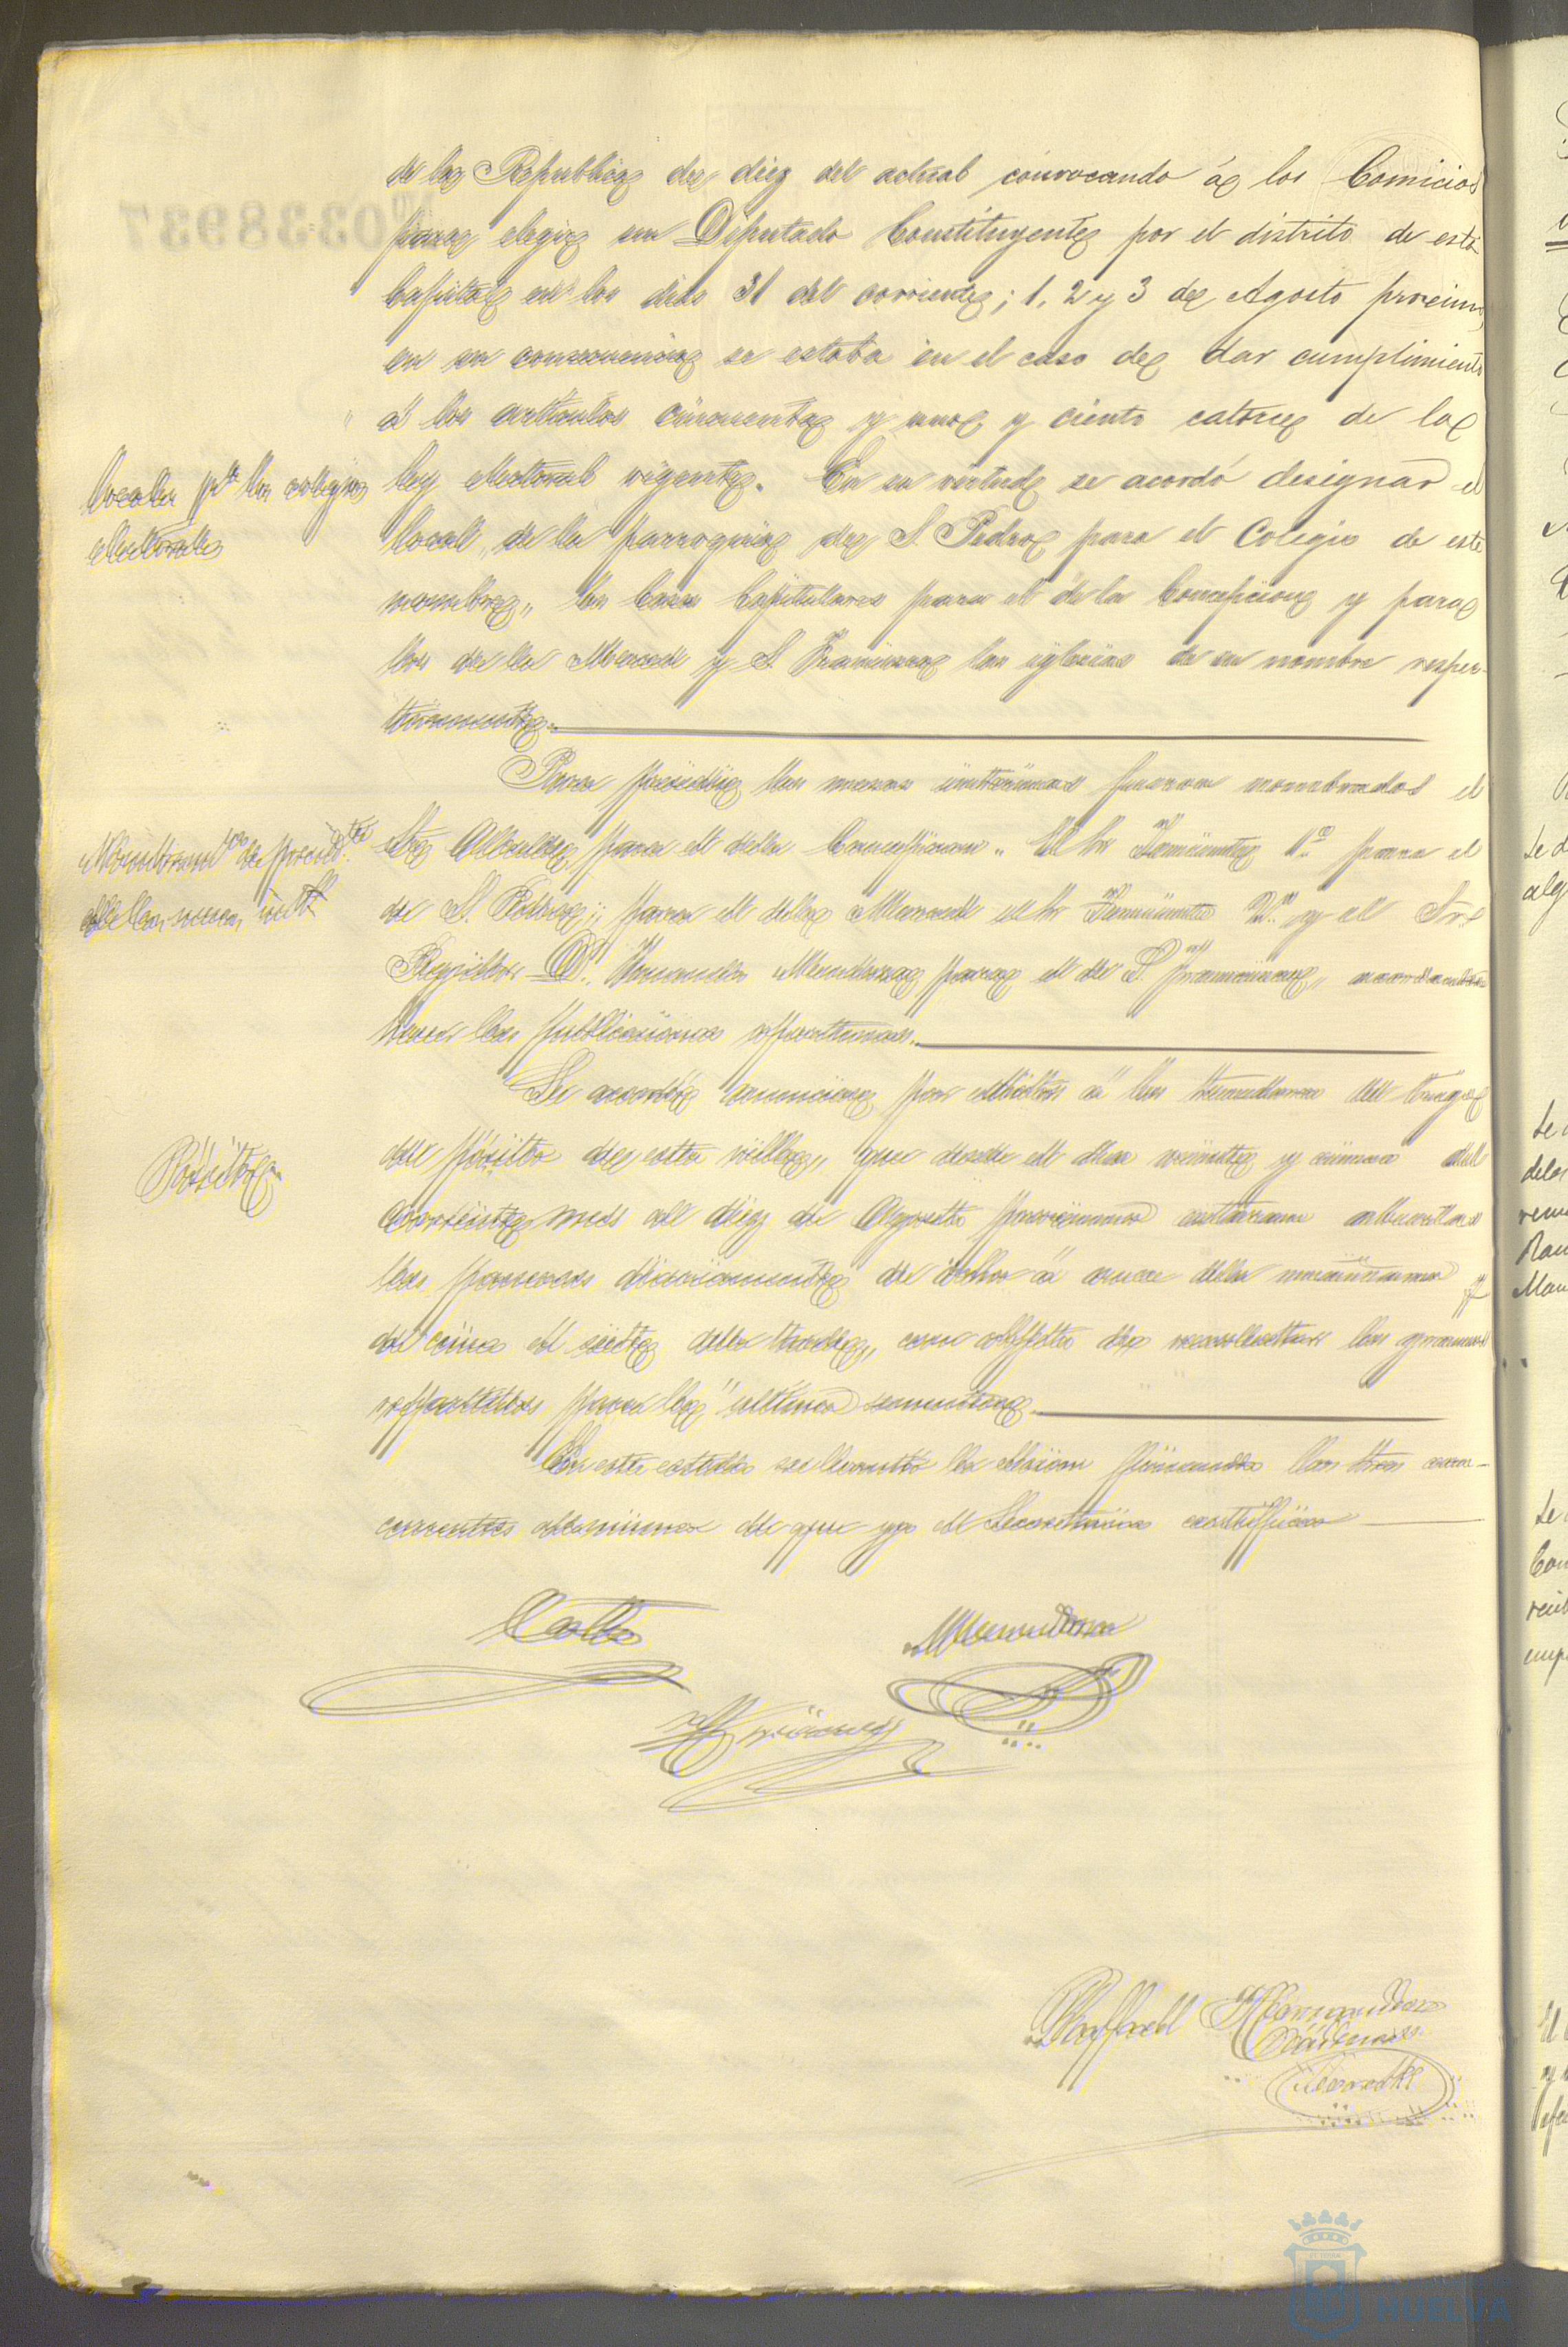 de la Republica de diez del actual convocando á los Comicios
para elegir un Diputado Constituyente por el distrito de esta
Capital en los dias 31 del corriente; 1, 2 y 3 de Agosto proximo,
en su consecuencia se estaba en el caso de dar cumplimiento
á los articulos cincuenta y uno y ciento catorce de la
Locales pª los colegios
electorales
ley electoral vigente. En su virtud se acordó designar el
local de la parroquia de S. Pedro para el Colegio de este
nombre, las Casas Capitulares para el de la Concepcion y para
los de la Merced y S. Francisco las iglesias de su nombre respec-
tivamente.
Para presidir las mesas interinas fueron nombrados el
Nombramto de presidtes
de las mesas intª
Sr Alcalde para el de la Concepcion. El Sr Teniente 1º para el
de S. Pedro; para el de la Merced el Sr Teniente 2º y el Sr
Regidor D. Mendoza para el de S. Francisco, acordandose
hacer las publicaciones oportunas.
Se acordó anunciar por edictos á los tenedores del trigo
Pósito
del pósito de esta villa, que desde el dia veinte y cinco del
corriente mes al diez de Agosto proximo estaran abiertas
las paneras diariamente de ocho á once de la mañana y
de cinco á siete de la tarde, con objeto de recolectar los granos
repartidos para la última sementera.
En este estado se levantó la sesion firmando los Sres con-
currentes de que yo el Secretario certifico
Mendoza
Rafael Hernandez
HUELVA